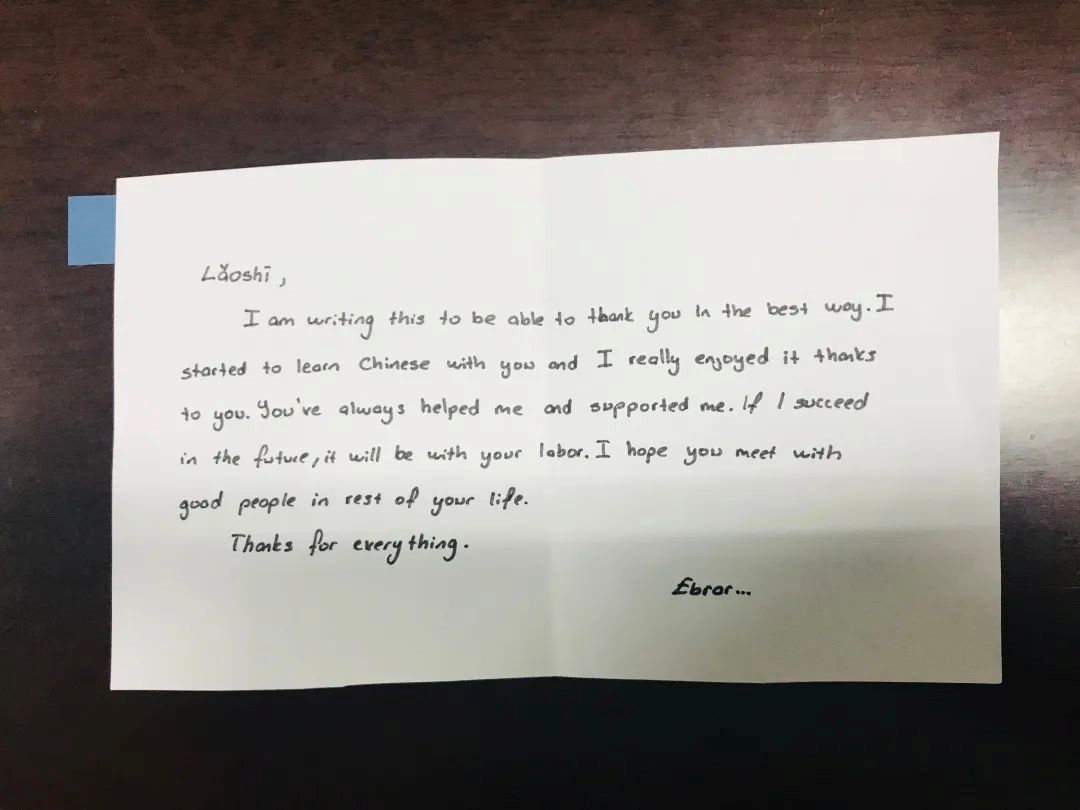 Lǎoshī,
I am writing this to be able to thank you in the best way. I
started to learn Chinese with you and I really enjoyed it thanks
to you. You've always helped me and supported me. If I succeed
in the future, it will be with your labor. I hope you meet with
good people in rest of your life.
Thanks for everything.
Ebrar...